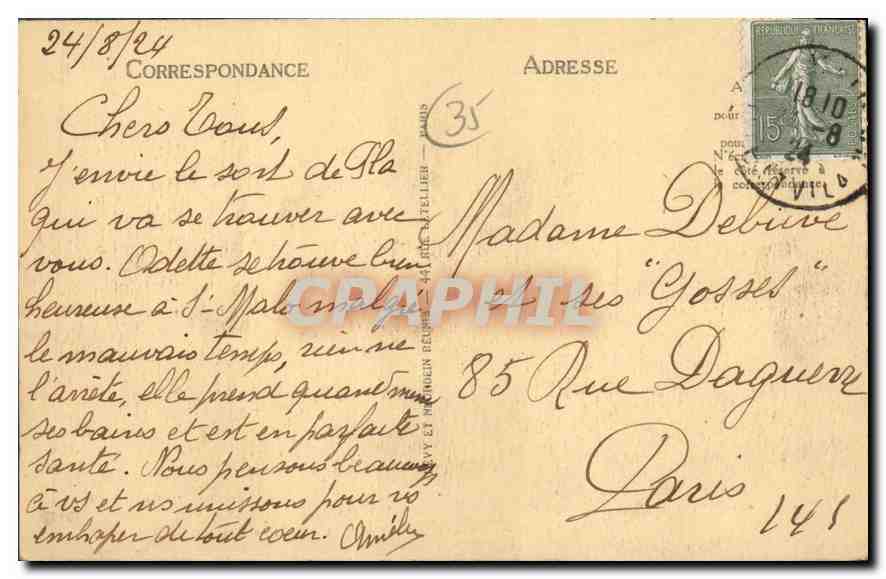 24/8/24
CORRESPONDANCE
Chers Tous,
J'envie le sort de Pla
qui va se trouver avec
vous. Odette se trouve bien
heureuse à St-Malo malgré
le mauvais temps, rien ne
l'arrête, elle prend quand même
ses bains et est en parfaite
santé. Nous pensons beaucoup
à vs et ns unissons pour vs
embrasser de tout coeur.
35
LEVY ET NEURDEIN RÉUNIS — 44, RUE LETELLIER — PARIS
ADRESSE
Madame Debuve
et ses "Gosses"
85 Rue Daguerre
Paris
141
RÉPUBLIQUE FRANÇAISE
15c
18 10
-8
24
pour
pou
N'éc
le côté réservé à
la correspondance.
CRAPHIL